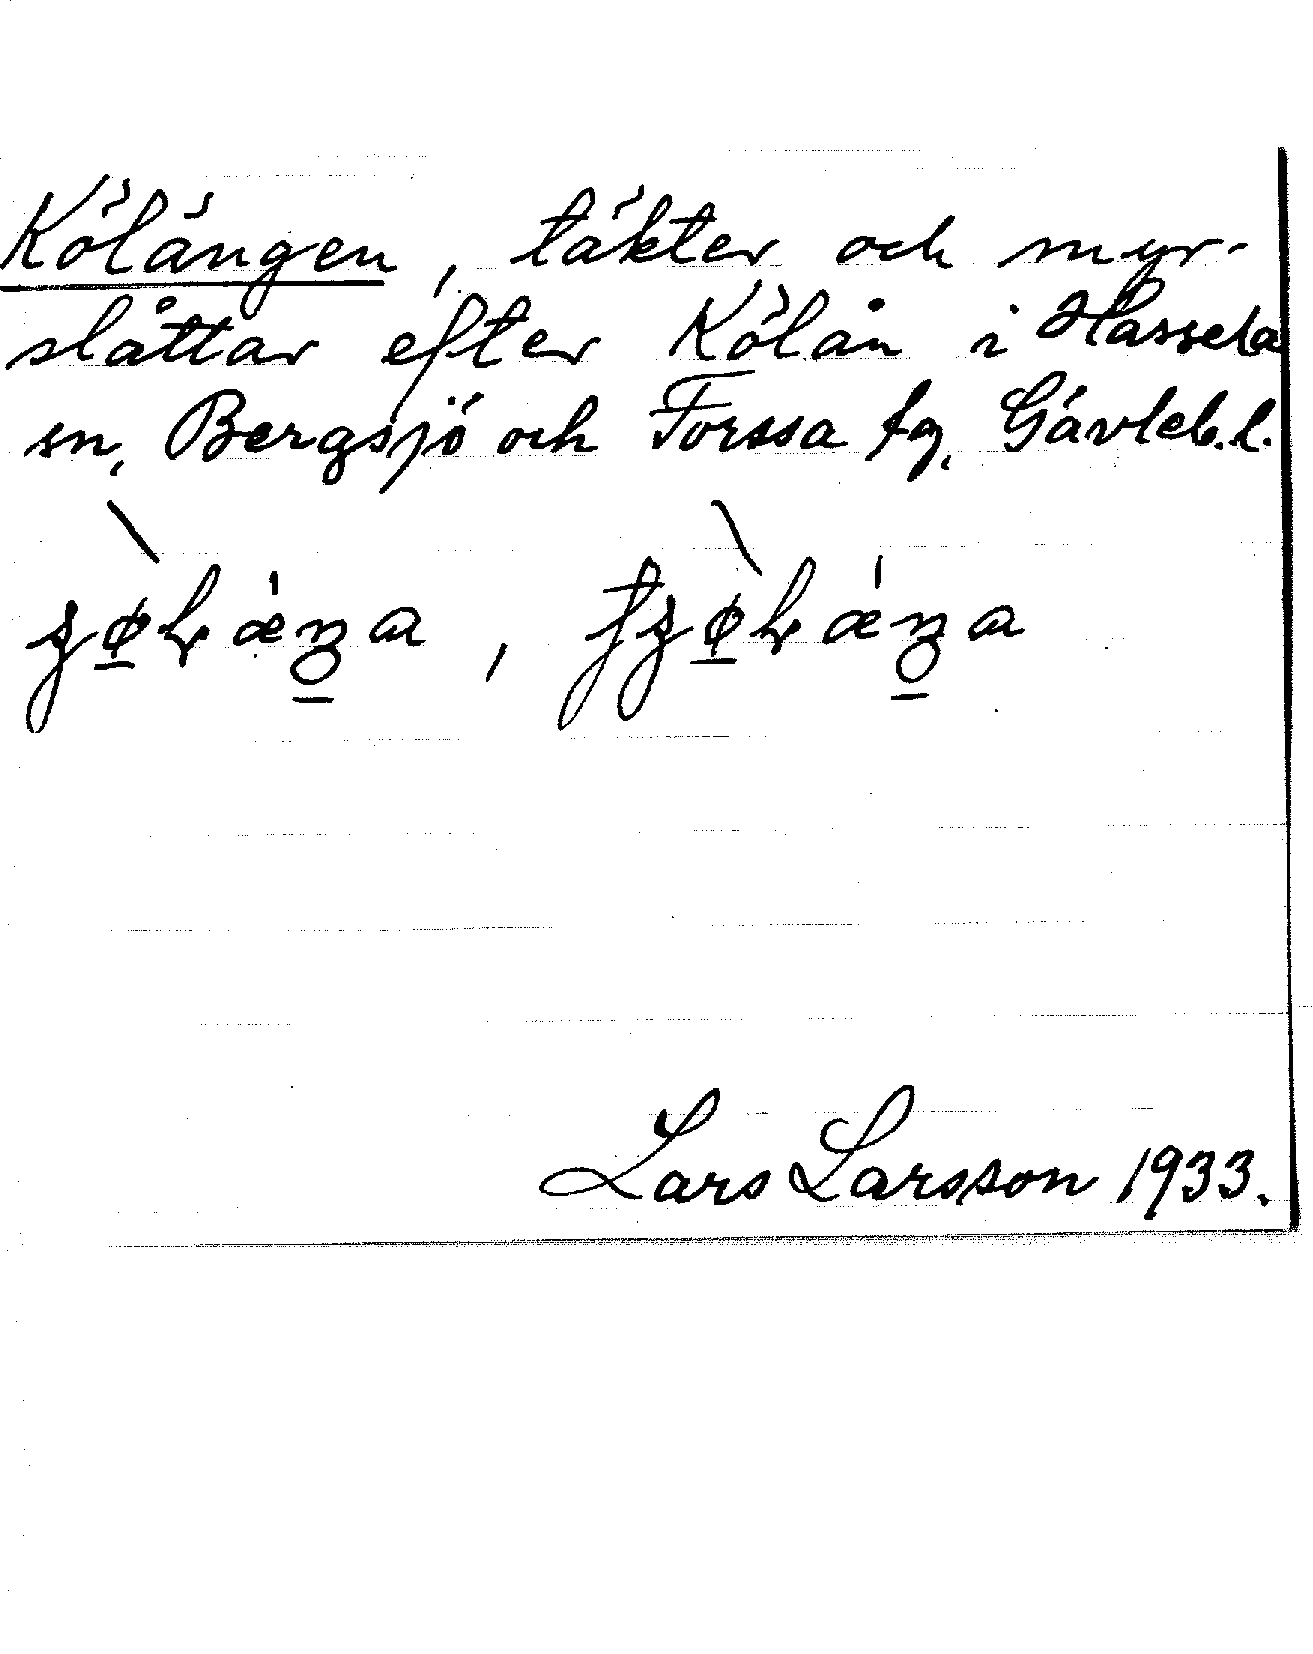 Kölängen, täkter och myr-
slåttar efter Kölån i Hassela
sn, Bergsjö och Forssa tg, Gävleb.l.
Lars Larsson 1933.